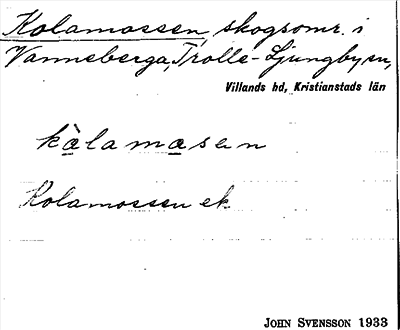 Kolamossen, skogsomr. i
Vanneberga, Trolle-Ljungby sn,
Villands hd, Kristianstads län
kàlamasen
Kolamossen ek.
JOHN SVENSSON 1933